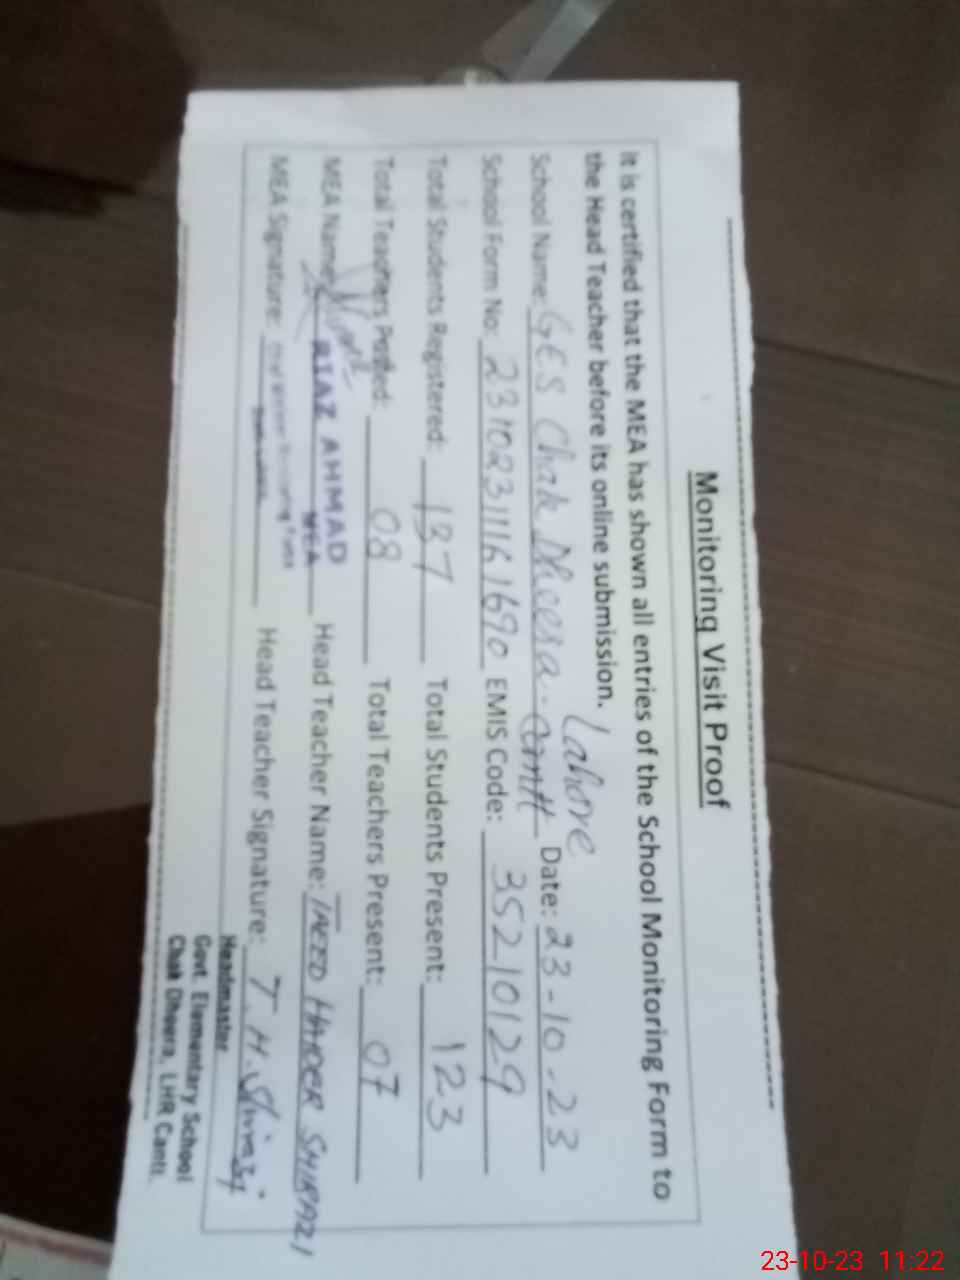 Monitoring Visit Proof
It is certified that the MEA has shown all entries of the School Monitoring Form to
the Head Teacher before its online submission.
Lahore
School Name: GES Chak Dheera Cantt Date: 23-10-23
School Form No: 2310231116 1690 EMIS Code: 35210129
Total Students Registered: 137 Total Students Present: 123
Total Teachers Posted: 08 Total Teachers Present: 07
MEA Name: RIAZ AHMAD Head Teacher Name: HAIDER SHIRAZI
MEA
MEA Signature: Head Teacher Signature: T.H. Shirazi
Headmaster
Govt. Elementary School
Chak Dheera, LHR Cantt.
23-10-23 11:22